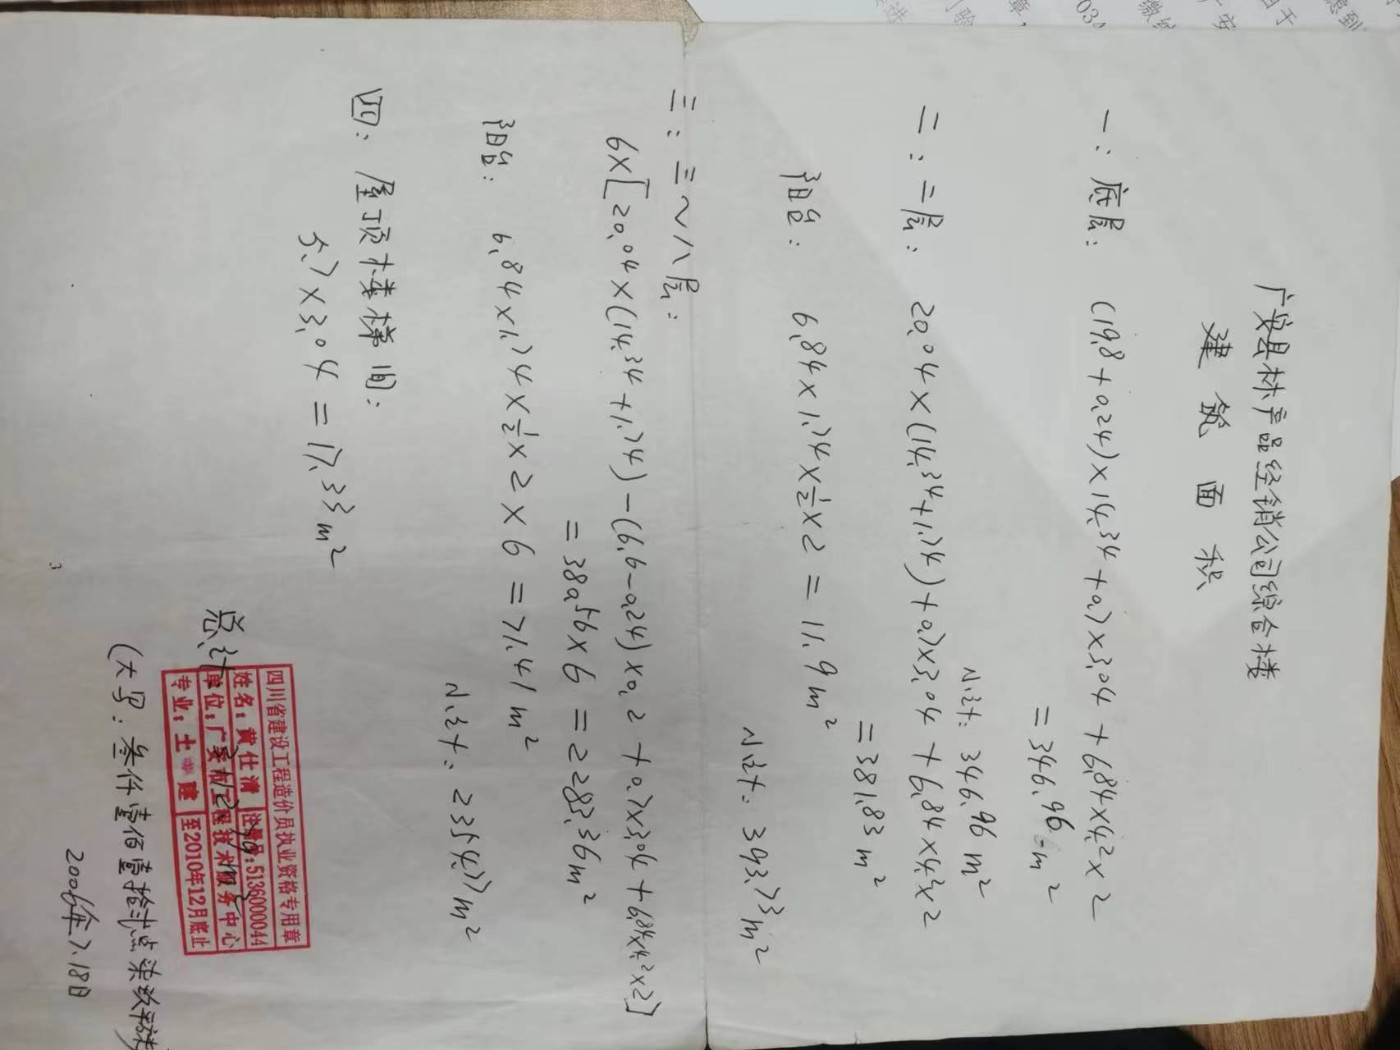 广安县林产品经销公司综合楼
建筑面积
一：底层：(19.8+0.24)×14.34+0.7×3.04+6.84×4.2×2
=346.96m²
小计：346.96m²
二：二层：20.04×(14.34+1.74)+0.7×3.04+6.84×4.2×2
=381.83m²
阳台：6.84×1.74×½×2=11.9m²
小计：393.73m²
三：三～八层：
6×[20.04×(14.34+1.74)-(6.6-0.24)×0.2+0.7×3.04+6.84×4.2×2]
=380.56×6=2283.36m²
阳台：6.84×1.74×½×2×6=71.41m²
小计：2354.77m²
四：屋顶楼梯间：
5.7×3.04=17.33m²
总计
四川省建设工程造价员执业资格专用章
姓名：黄仕清 注册号：5136000044
单位：广安 工程技术服务中心
专业：土建 至2010年12月底止
(大写：叁仟壹佰壹拾贰点柒玖平方米)
2006年7.18日